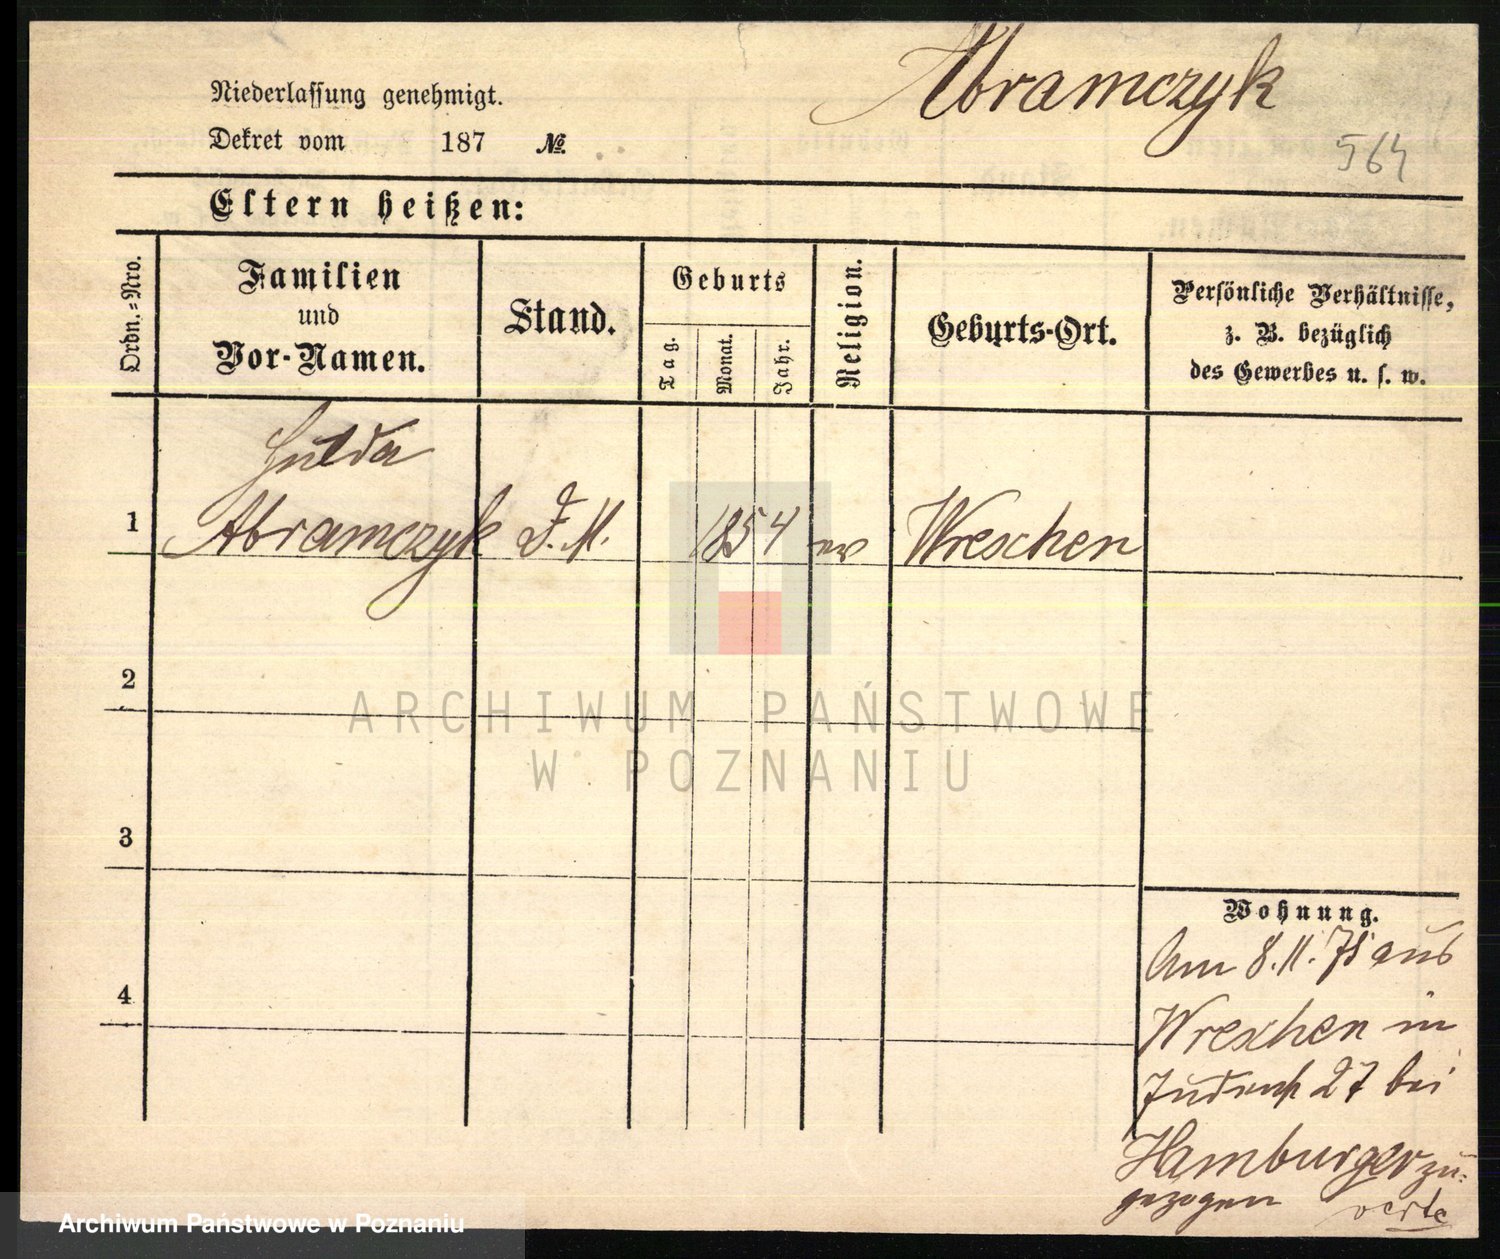 Abramczyk
Niederlassung genehmigt.
Dekret vom 187 №
564
Eltern heißen:
Ordn.-Nro.
Familien
und
Vor-Namen.
Stand.
Geburts
Tag.
Monat.
Jahr.
Religion.
Geburts-Ort.
Persönliche Verhältnisse,
z. B. bezüglich
des Gewerbes u. s. w.
Hulda
1 Abramczyk D. M. 1854 Wreschen
2
ARCHIWUM PAŃSTWOWE
W POZNANIU
3
Wohnung.
4
Am 8.11.78 aus
Wreschen in
Judenstr 27 bei
Hamburger zu-
gezogen verte
Archiwum Państwowe w Poznaniu